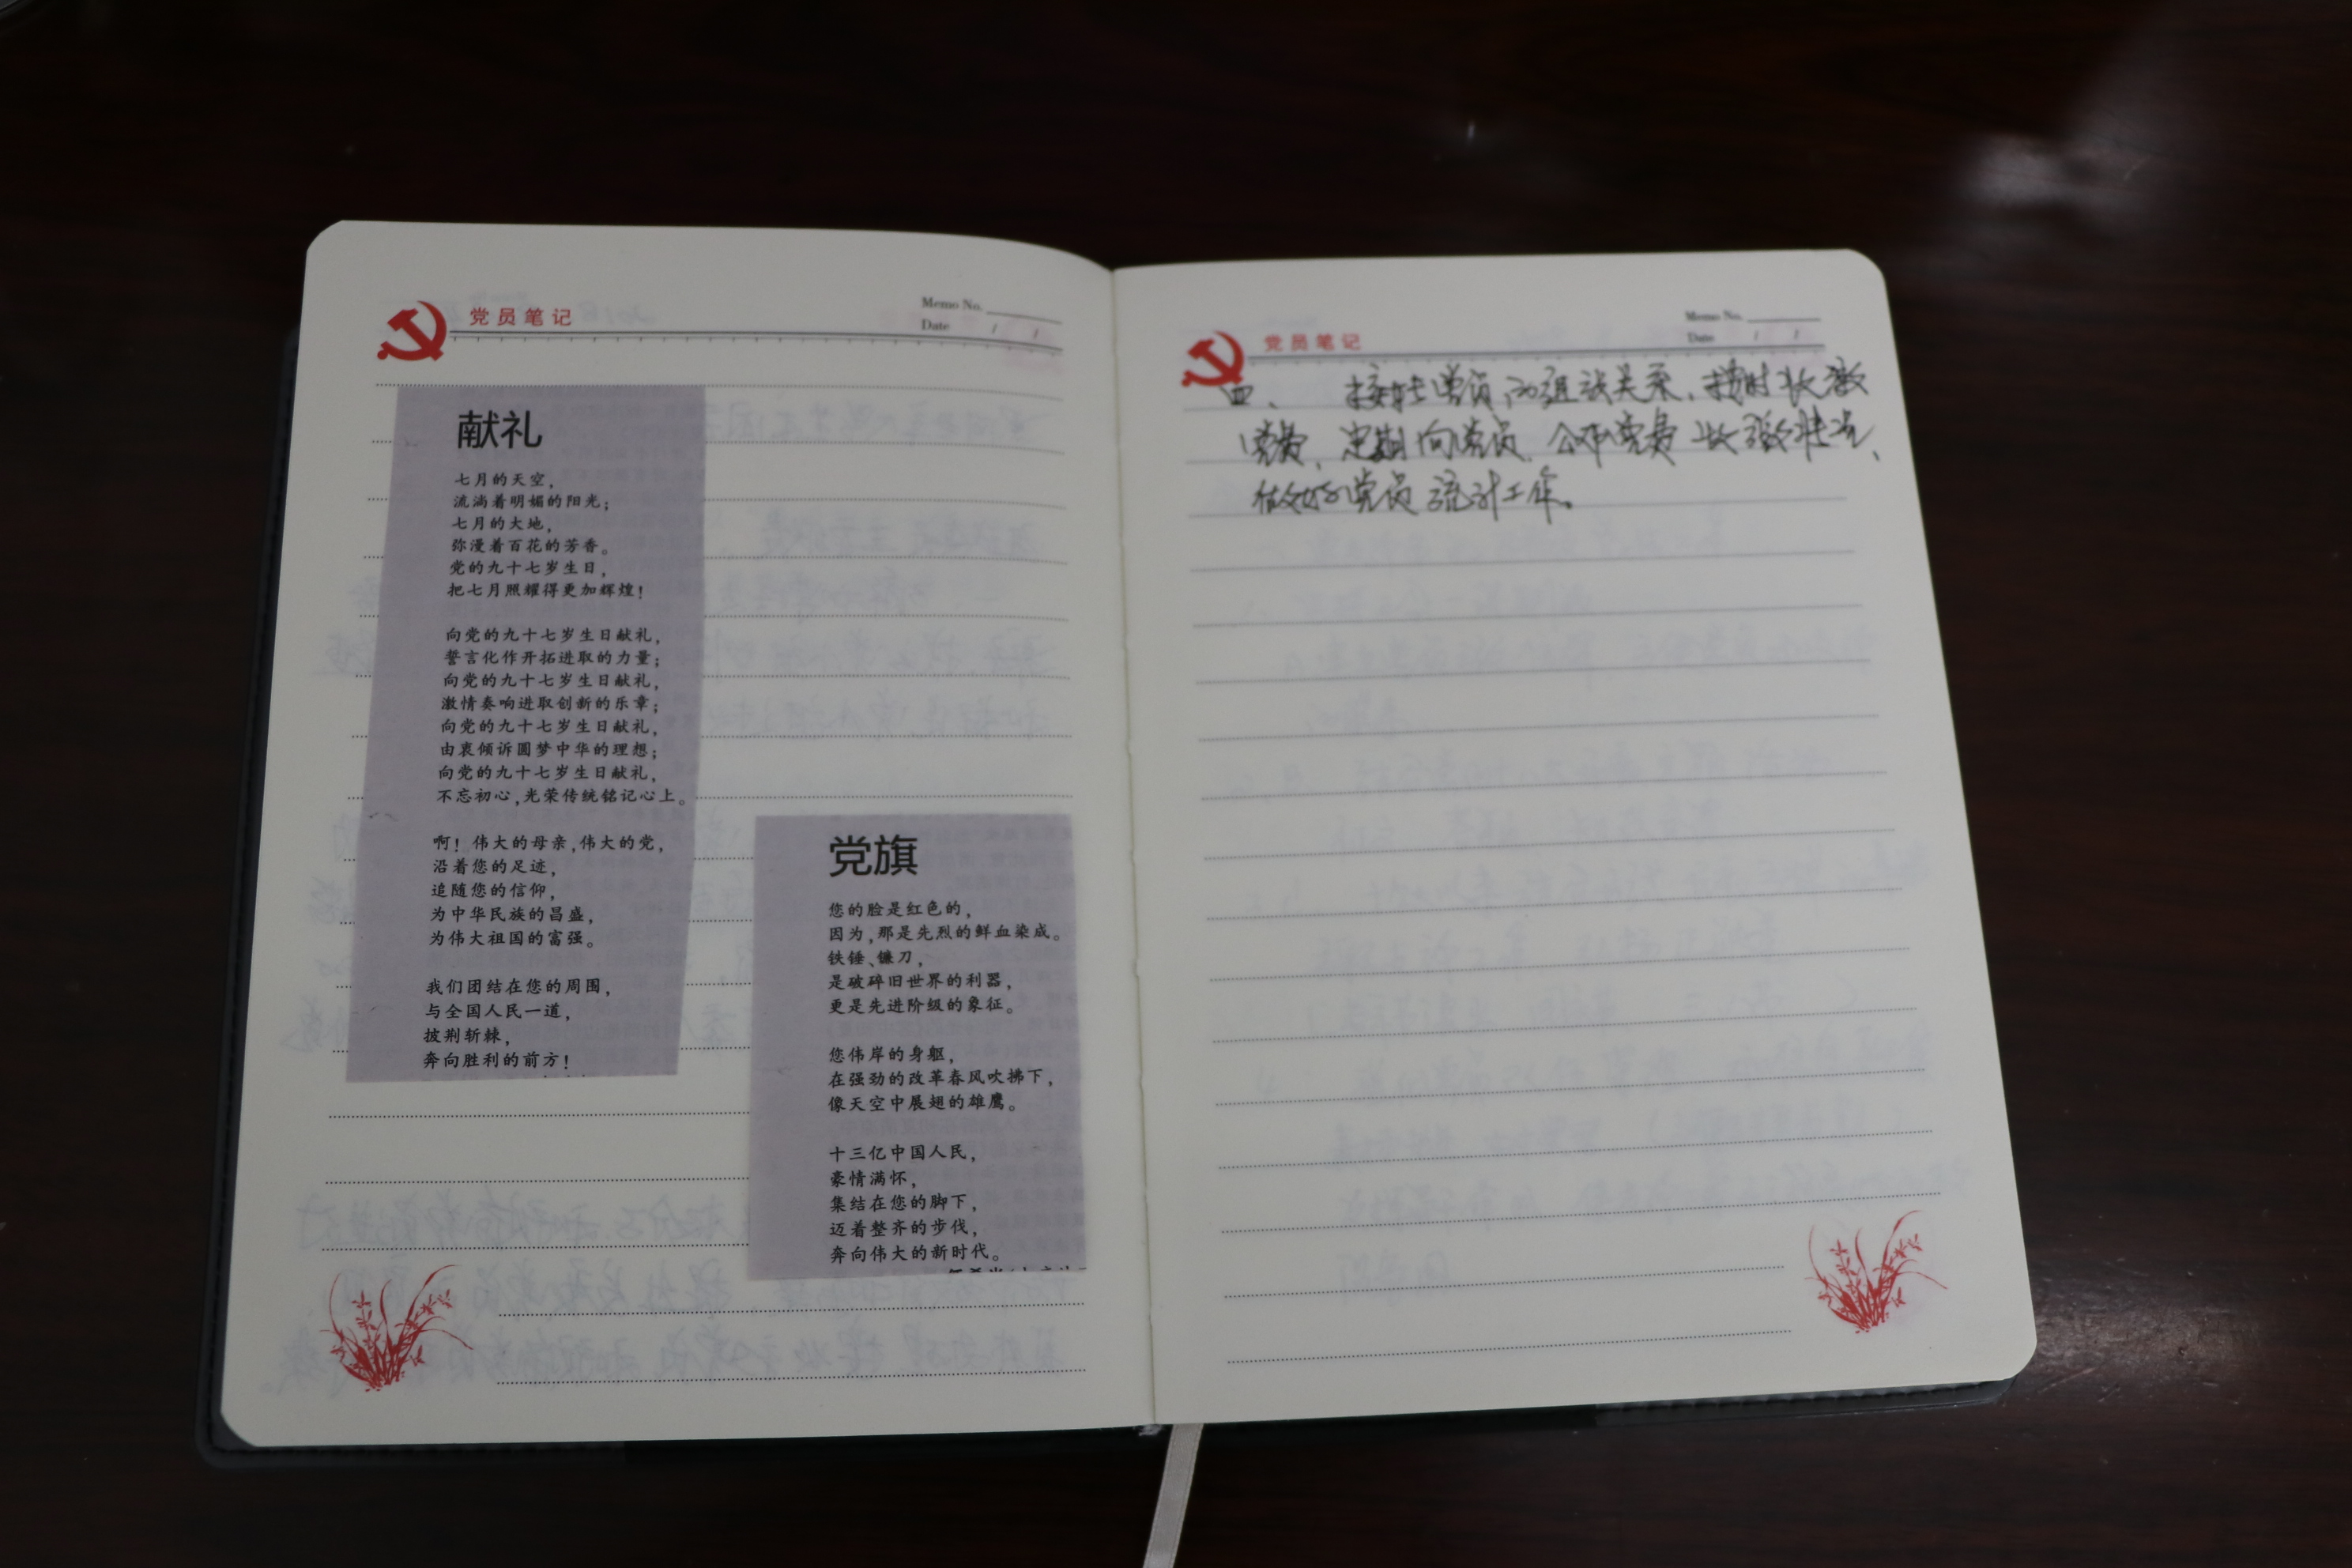 党员笔记
Memo No.
Date / /
献礼
七月的天空，
流淌着明媚的阳光；
七月的大地，
弥漫着百花的芳香。
党的九十七岁生日，
把七月照耀得更加辉煌！
向党的九十七岁生日献礼，
誓言化作开拓进取的力量；
向党的九十七岁生日献礼，
激情奏响进取创新的乐章；
向党的九十七岁生日献礼，
由衷倾诉圆梦中华的理想；
向党的九十七岁生日献礼，
不忘初心，光荣传统铭记心上。
啊！伟大的母亲，伟大的党，
沿着您的足迹，
追随您的信仰，
为中华民族的昌盛，
为伟大祖国的富强。
我们团结在您的周围，
与全国人民一道，
披荆斩棘，
奔向胜利的前方！
党旗
您的脸是红色的，
因为，那是先烈的鲜血染成。
铁锤、镰刀，
是破碎旧世界的利器，
更是先进阶级的象征。
您伟岸的身躯，
在强劲的改革春风吹拂下，
像天空中展翅的雄鹰。
十三亿中国人民，
豪情满怀，
集结在您的脚下，
迈着整齐的步伐，
奔向伟大的新时代。
党员笔记
Memo No.
Date / /
四、 接转党员的组织关系，按时收缴
党费，定期向党员公布党费收缴状况，
做好党员统计工作。